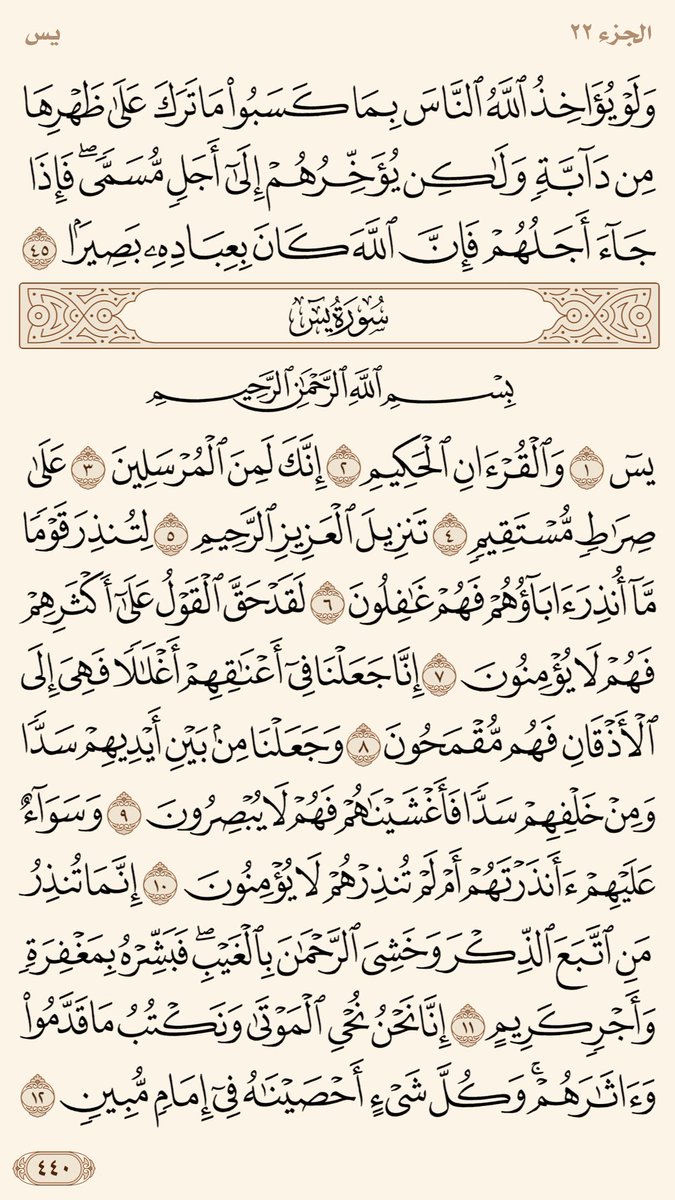 الجزء ٢٢
يس
وَلَوْ يُؤَاخِذُ ٱللَّهُ ٱلنَّاسَ بِمَا كَسَبُوا۟ مَا تَرَكَ عَلَىٰ ظَهْرِهَا
مِن دَآبَّةٍ وَلَٰكِن يُؤَخِّرُهُمْ إِلَىٰٓ أَجَلٍ مُّسَمًّى ۖ فَإِذَا
جَآءَ أَجَلُهُمْ فَإِنَّ ٱللَّهَ كَانَ بِعِبَادِهِۦ بَصِيرًۢا ٤٥
سُورَةُ يسٓ
بِسْمِ ٱللَّهِ ٱلرَّحْمَٰنِ ٱلرَّحِيمِ
يسٓ ١ وَٱلْقُرْءَانِ ٱلْحَكِيمِ ٢ إِنَّكَ لَمِنَ ٱلْمُرْسَلِينَ ٣ عَلَىٰ
صِرَٰطٍ مُّسْتَقِيمٍ ٤ تَنزِيلَ ٱلْعَزِيزِ ٱلرَّحِيمِ ٥ لِتُنذِرَ قَوْمًا
مَّآ أُنذِرَ ءَابَآؤُهُمْ فَهُمْ غَٰفِلُونَ ٦ لَقَدْ حَقَّ ٱلْقَوْلُ عَلَىٰٓ أَكْثَرِهِمْ
فَهُمْ لَا يُؤْمِنُونَ ٧ إِنَّا جَعَلْنَا فِىٓ أَعْنَٰقِهِمْ أَغْلَٰلًا فَهِىَ إِلَى
ٱلْأَذْقَانِ فَهُم مُّقْمَحُونَ ٨ وَجَعَلْنَا مِنۢ بَيْنِ أَيْدِيهِمْ سَدًّا
وَمِنْ خَلْفِهِمْ سَدًّا فَأَغْشَيْنَٰهُمْ فَهُمْ لَا يُبْصِرُونَ ٩ وَسَوَآءٌ
عَلَيْهِمْ ءَأَنذَرْتَهُمْ أَمْ لَمْ تُنذِرْهُمْ لَا يُؤْمِنُونَ ١٠ إِنَّمَا تُنذِرُ
مَنِ ٱتَّبَعَ ٱلذِّكْرَ وَخَشِىَ ٱلرَّحْمَٰنَ بِٱلْغَيْبِ ۖ فَبَشِّرْهُ بِمَغْفِرَةٍ
وَأَجْرٍ كَرِيمٍ ١١ إِنَّا نَحْنُ نُحْىِ ٱلْمَوْتَىٰ وَنَكْتُبُ مَا قَدَّمُوا۟
وَءَاثَٰرَهُمْ ۚ وَكُلَّ شَىْءٍ أَحْصَيْنَٰهُ فِىٓ إِمَامٍ مُّبِينٍ ١٢
٤٤٠